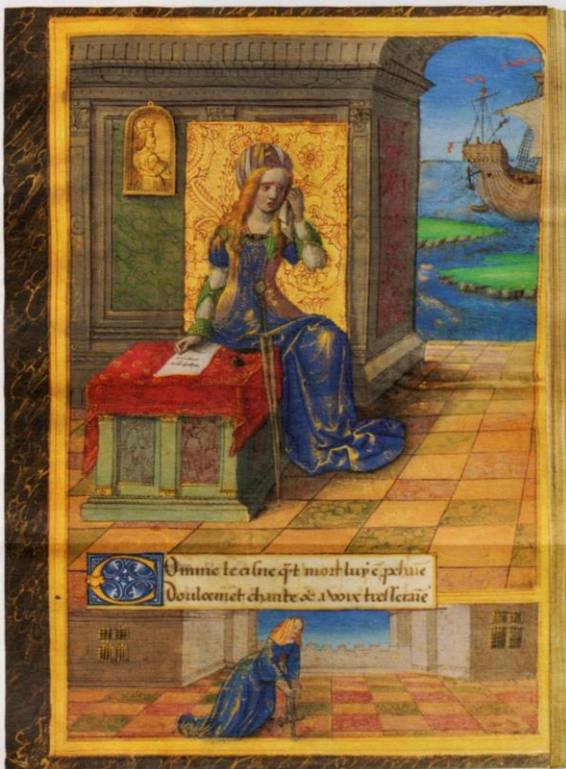 Comme le cisne q̃t mort luy ẽ p̱chaiē
Doulcemēt chante & a voix tresseraiē